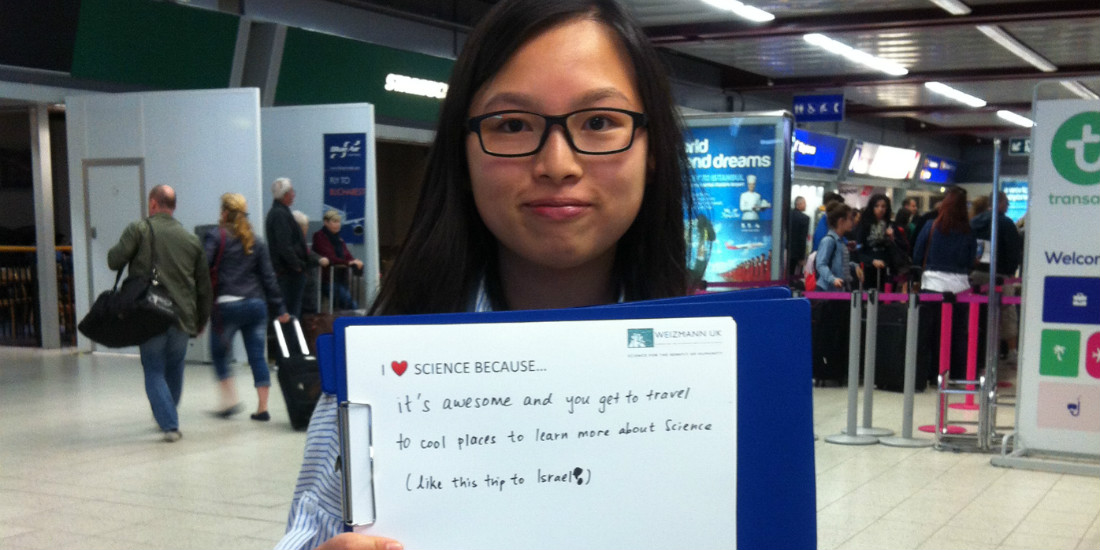 STARBU
FLY TO
BUCHAREST
orld
end dreams
FLY TO ISTANBUL
transa
Welcom
WEIZMANN UK
SCIENCE FOR THE BENEFIT OF HUMANITY
I ❤ SCIENCE BECAUSE...
it's awesome and you get to travel
to cool places to learn more about Science
(like this trip to Israel!)